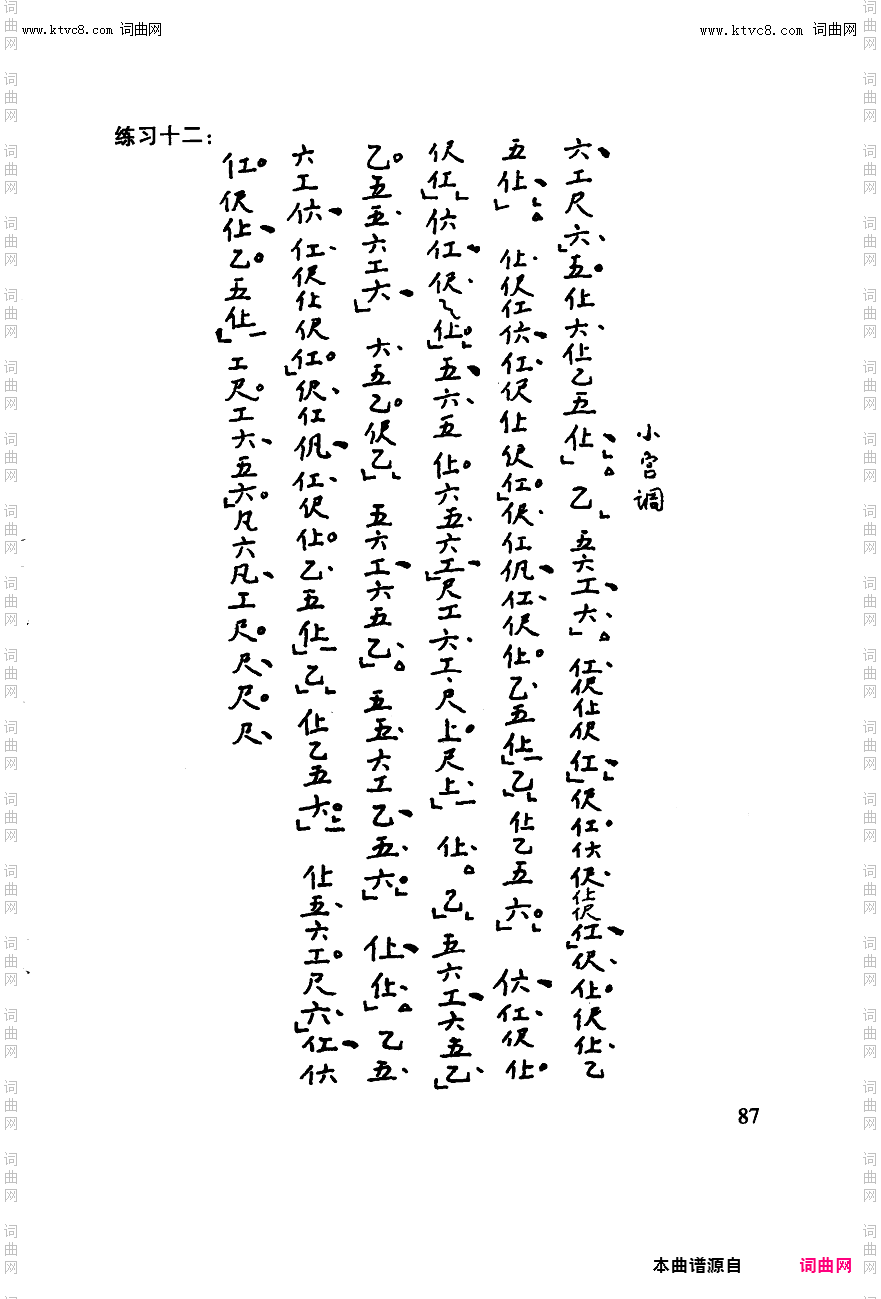 www.ktvc8.com 词曲网
www.ktvc8.com 词曲网
练习十二：
小宫调
六工尺六五仩六仩乙五仩乙五六工六仜伬仩伬仜伬仜𠆾伬仩伬仜伬仩伬仩乙
五仩仩伬仜𠆾仜伬仩伬仜伬仜㐸仜伬仩乙五仩乙仩乙五六𠆾仜伬仩
伬仜𠆾仜伬仩五六五仩六五六工尺工六工尺上尺上仩乙五六工六五乙
乙五五六工六六五乙伬乙五六工六五乙五五六工乙五六仩仩乙五
六工𠆾仜伬仩伬仜伬仜㐸仜伬仩乙五仩乙仩乙五六仩五六工尺六仜𠆾
仜伬仩乙五仩工尺工六五六凡六凡工尺尺尺尺
87
本曲谱源自 词曲网